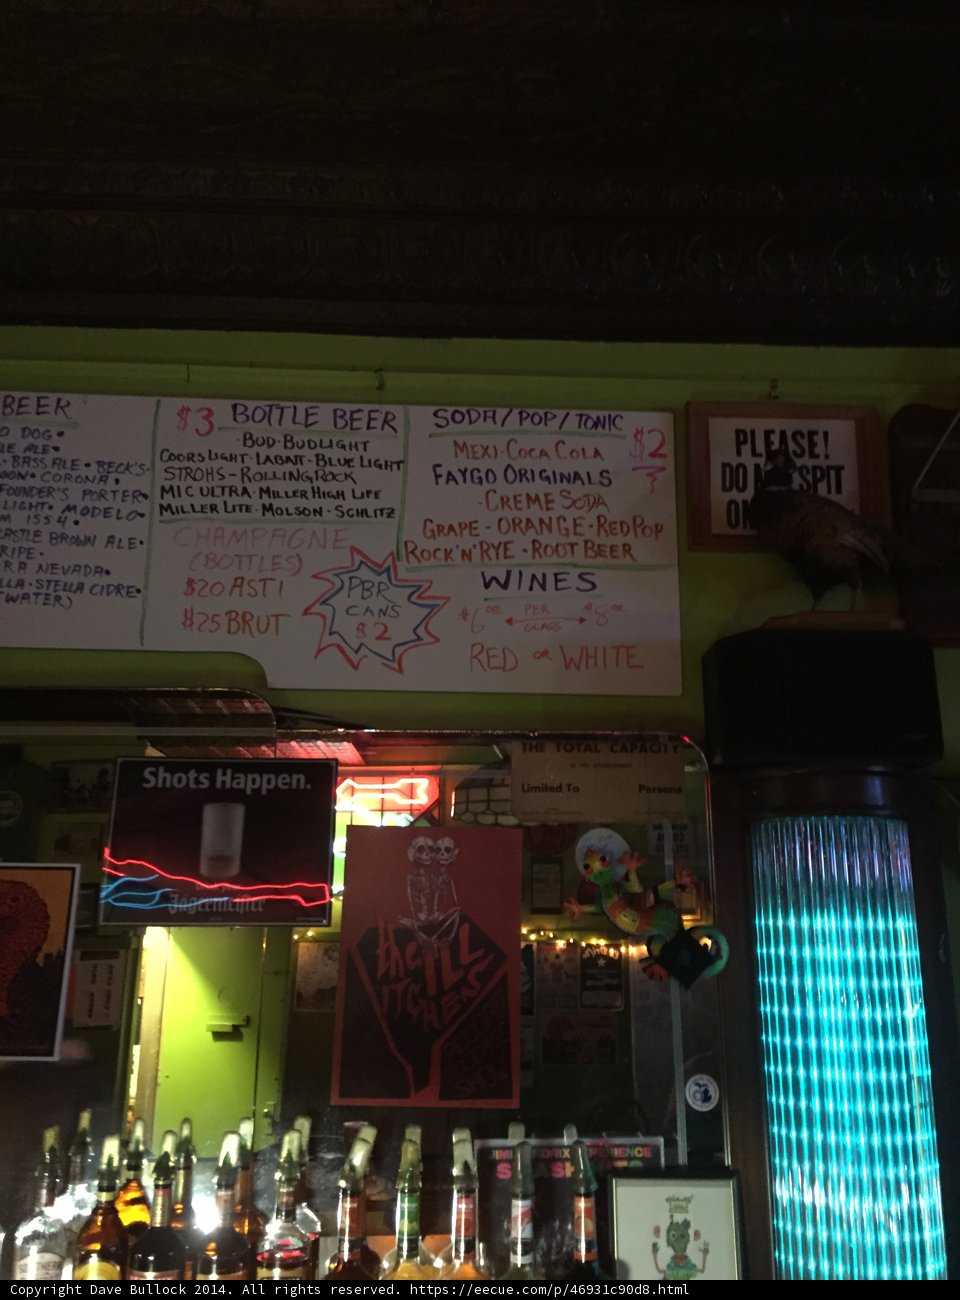 BEER
O DOG•
LE ALE•
• BASS ALE • BECK'S•
CORONA•
FOUNDER'S PORTER•
LIGHT• MODELO•
M 1554•
CASTLE BROWN ALE•
RIPE•
RRA NEVADA•
LLA•STELLA CIDRE•
WATER)
$3 BOTTLE BEER
•BUD•BUDLIGHT
COORS LIGHT•LABATT•BLUE LIGHT
STROHS-ROLLING ROCK
MIC ULTRA•MILLER HIGH LIFE
MILLER LITE•MOLSON•SCHLITZ
CHAMPAGNE
(BOTTLES)
$20 ASTI
$25 BRUT
PBR
CANS
$2
SODA/POP/TONIC
$2
MEXI-COCA COLA
FAYGO ORIGINALS
-CREME SODA
GRAPE-ORANGE-RED POP
ROCK'N'RYE-ROOT BEER
WINES
$6.00 PER GLASS $8.00
RED OR WHITE
PLEASE!
DO SPIT
ON
THE TOTAL CAPACITY
Limited To Persons
Shots Happen.
Jägermeister
THE ILL
ITCHENS
JIMI HENDRIX EXPERIENCE
Copyright Dave Bullock 2014. All rights reserved. https://eecue.com/p/46931c90d8.html